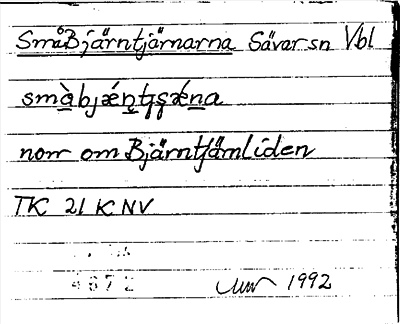 SmåBjärntjärnarna Sävar sn Vbl
smàbjǽntȷ̧ʂǽna
norr om Bjärntjärnliden
TK 21 K NV
4872
1992